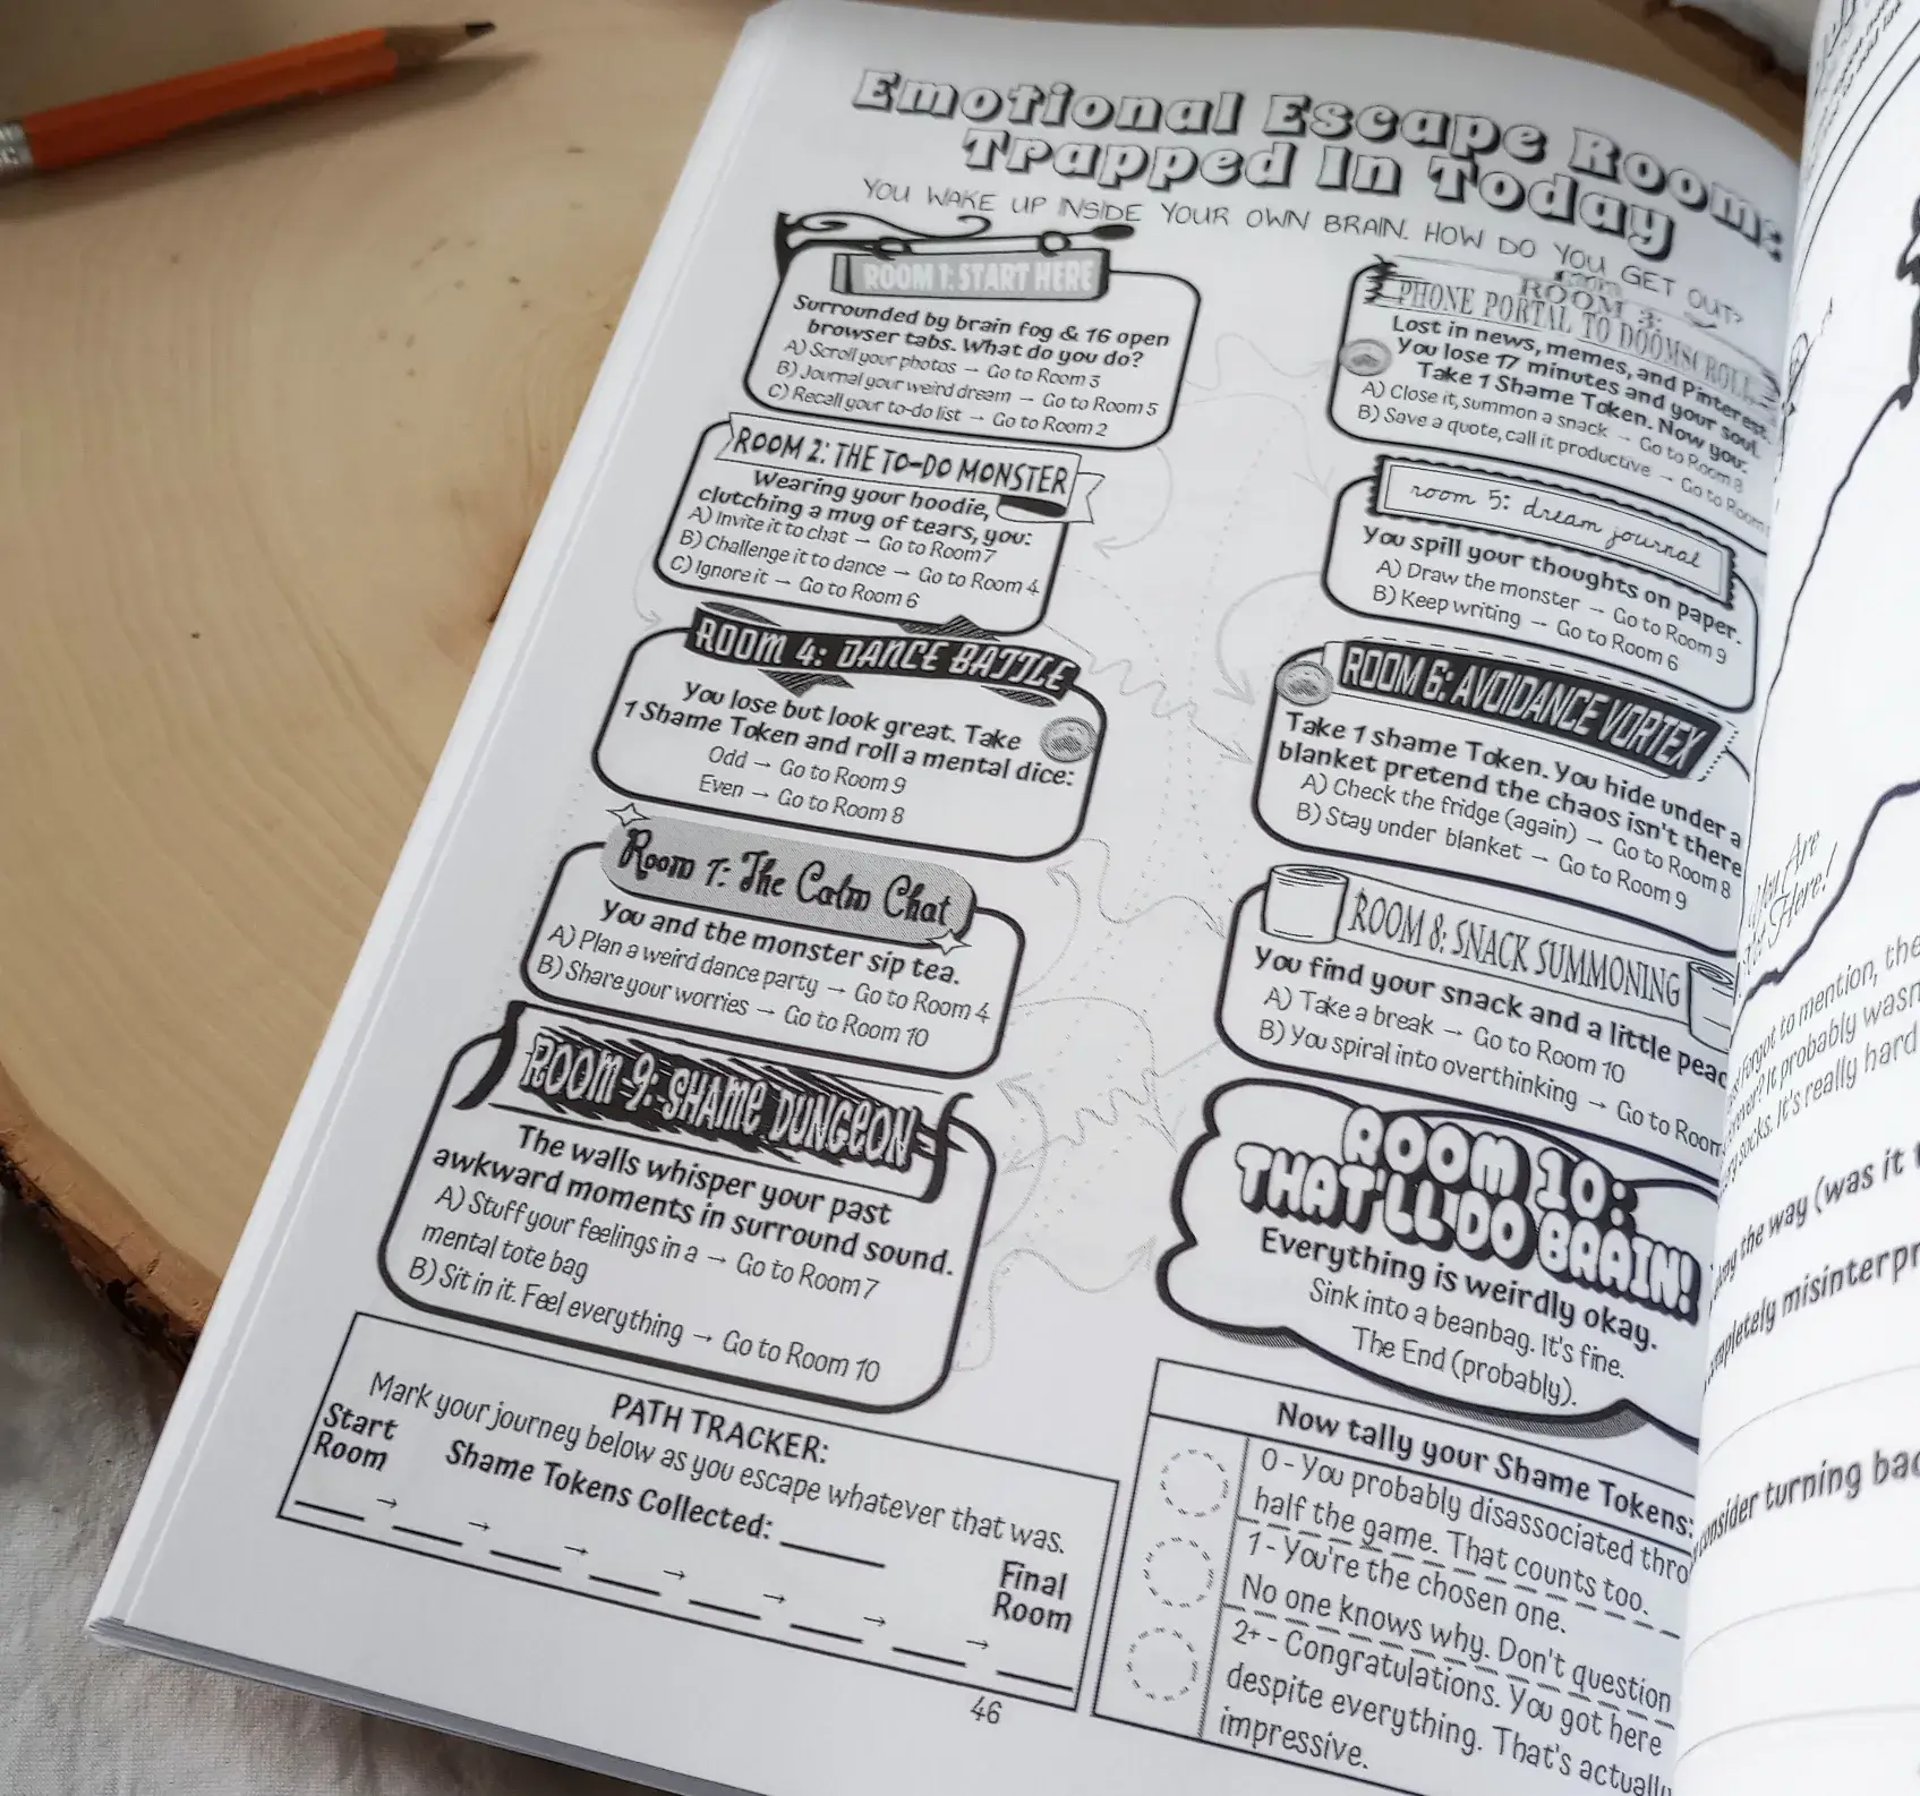 Emotional Escape Room:
Trapped In Today
YOU WAKE UP INSIDE YOUR OWN BRAIN. HOW DO YOU GET OUT?
ROOM 1: START HERE
Surrounded by brain fog & 16 open
browser tabs. What do you do?
A) Scroll your photos → Go to Room 3
B) Journal your weird dream → Go to Room 5
C) Recall your to-do list → Go to Room 2
ROOM 2: THE TO-DO MONSTER
Wearing your hoodie,
clutching a mug of tears, you:
A) Invite it to chat → Go to Room 7
B) Challenge it to dance → Go to Room 4
C) Ignore it → Go to Room 6
ROOM 3:
PHONE PORTAL TO DOOMSCROLL
Lost in news, memes, and Pinterest.
You lose 17 minutes and your soul.
Take 1 Shame Token. Now you:
A) Close it, summon a snack → Go to Room 8
B) Save a quote, call it productive → Go to Room
ROOM 4: DANCE BATTLE
You lose but look great. Take
1 Shame Token and roll a mental dice:
Odd → Go to Room 9
Even → Go to Room 8
room 5: dream journal
You spill your thoughts on paper.
A) Draw the monster → Go to Room 9
B) Keep writing → Go to Room 6
ROOM 6: AVOIDANCE VORTEX
Take 1 shame Token. You hide under a
blanket pretend the chaos isn't there
A) Check the fridge (again) → Go to Room 8
B) Stay under blanket → Go to Room 9
Room 7: The Calm Chat
You and the monster sip tea.
A) Plan a weird dance party → Go to Room 4
B) Share your worries → Go to Room 10
ROOM 8: SNACK SUMMONING
You find your snack and a little peac
A) Take a break → Go to Room 10
B) You spiral into overthinking → Go to Room
ROOM 9: SHAME DUNGEON
The walls whisper your past
awkward moments in surround sound.
A) Stuff your feelings in a → Go to Room 7
mental tote bag
B) Sit in it. Feel everything → Go to Room 10
ROOM 10:
THAT'LL DO BRAIN!
Everything is weirdly okay.
Sink into a beanbag. It's fine.
The End (probably).
PATH TRACKER:
Mark your journey below as you escape whatever that was.
Start
Room
Shame Tokens Collected:
→ → → → → → →
Final
Room
Now tally your Shame Tokens:
0 - You probably disassociated thro
half the game. That counts too.
1 - You're the chosen one.
No one knows why. Don't question
2+ - Congratulations. You got here
despite everything. That's actually
impressive.
46
You Are
Not Here!
forgot to mention, the
ever? It probably wasn
socks. It's really hard
along the way (was it
completely misinterpr
consider turning bac